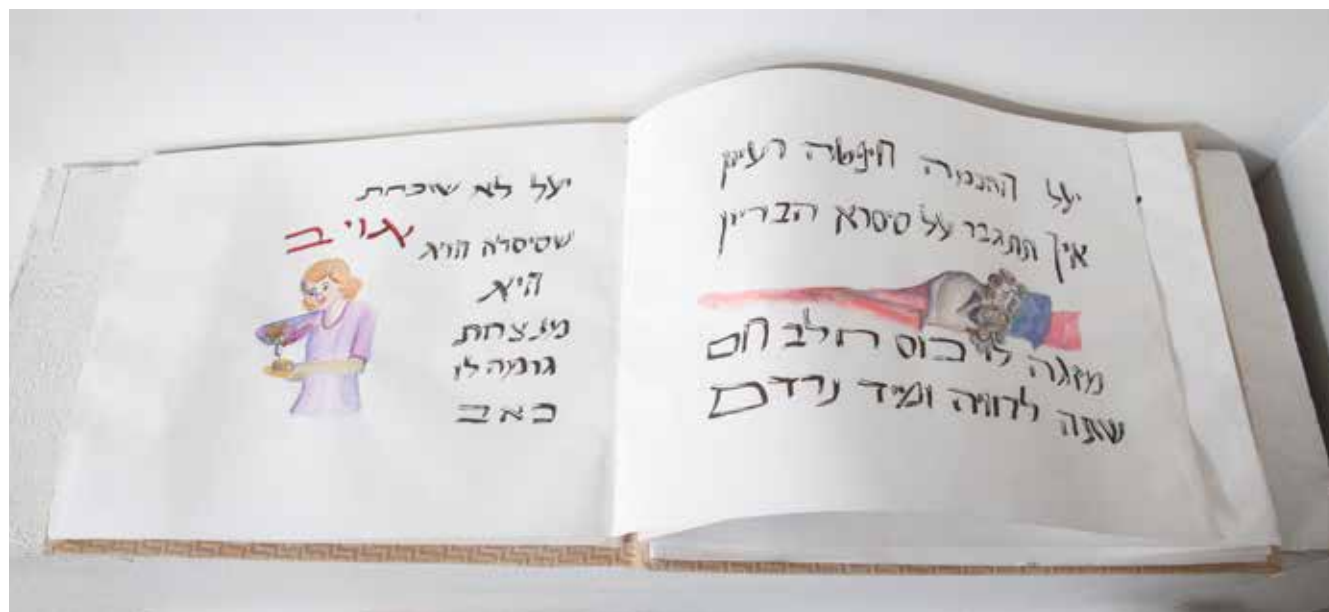 יעל החכמה חיפשה רעיון
איך תתגבר על סיסרא הבריון
מזגה לו כוס חלב חם
שתה לרוויה ומיד נרדם
יעל לא שוכחת
שסיסרא הוא אויב
היא
מנצחת
גרמה לו
כאב